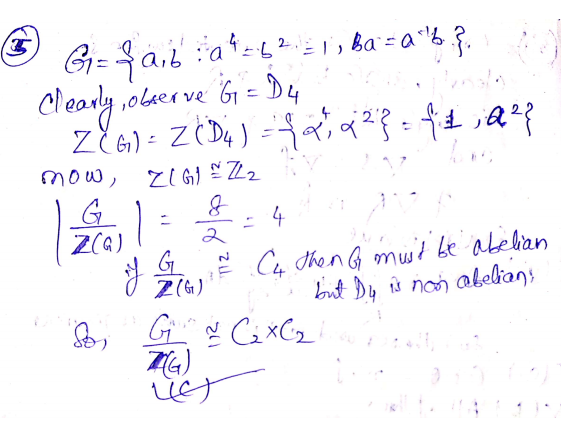 5 G = { a, b : a^4 = b^2 = 1, ba = a^-1 b }.
Clearly, observe G = D4
Z(G) = Z(D4) = { a^4, a^2 } = { 1, a^2 }
now, Z(G) ≅ Z2
| G / Z(G) | = 8 / 2 = 4
if G / Z(G) ≅ C4 then G must be abelian
but D4 is non abelian;
So, G / Z(G) ≅ C2 × C2
(C)